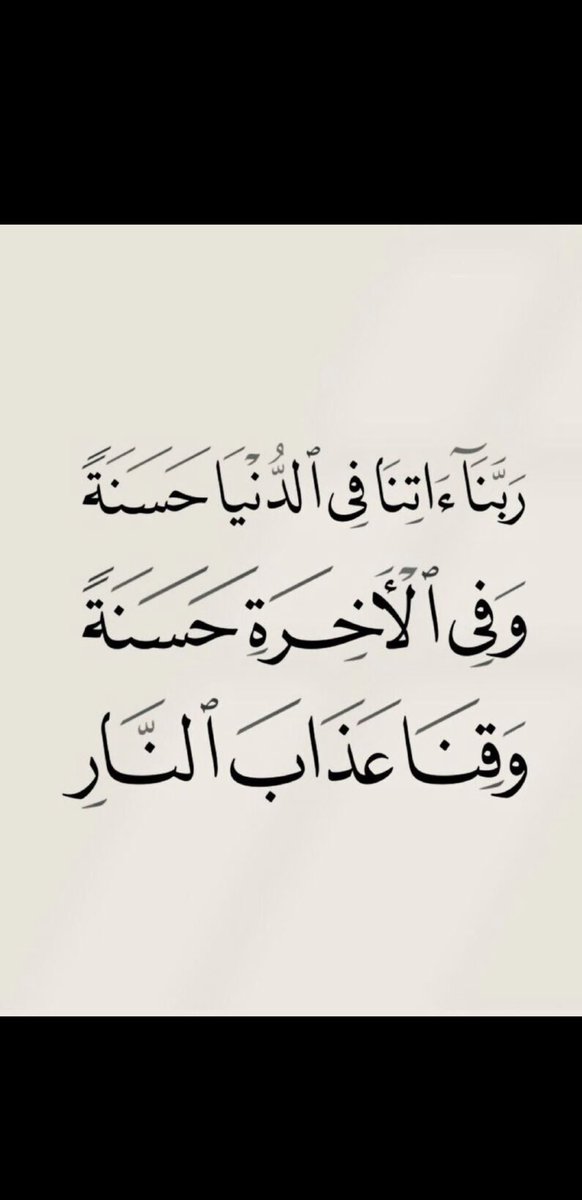 رَبَّنَآ ءَاتِنَا فِى ٱلدُّنْيَا حَسَنَةً
وَفِى ٱلْأَخِرَةِ حَسَنَةً
وَقِنَا عَذَابَ ٱلنَّارِ